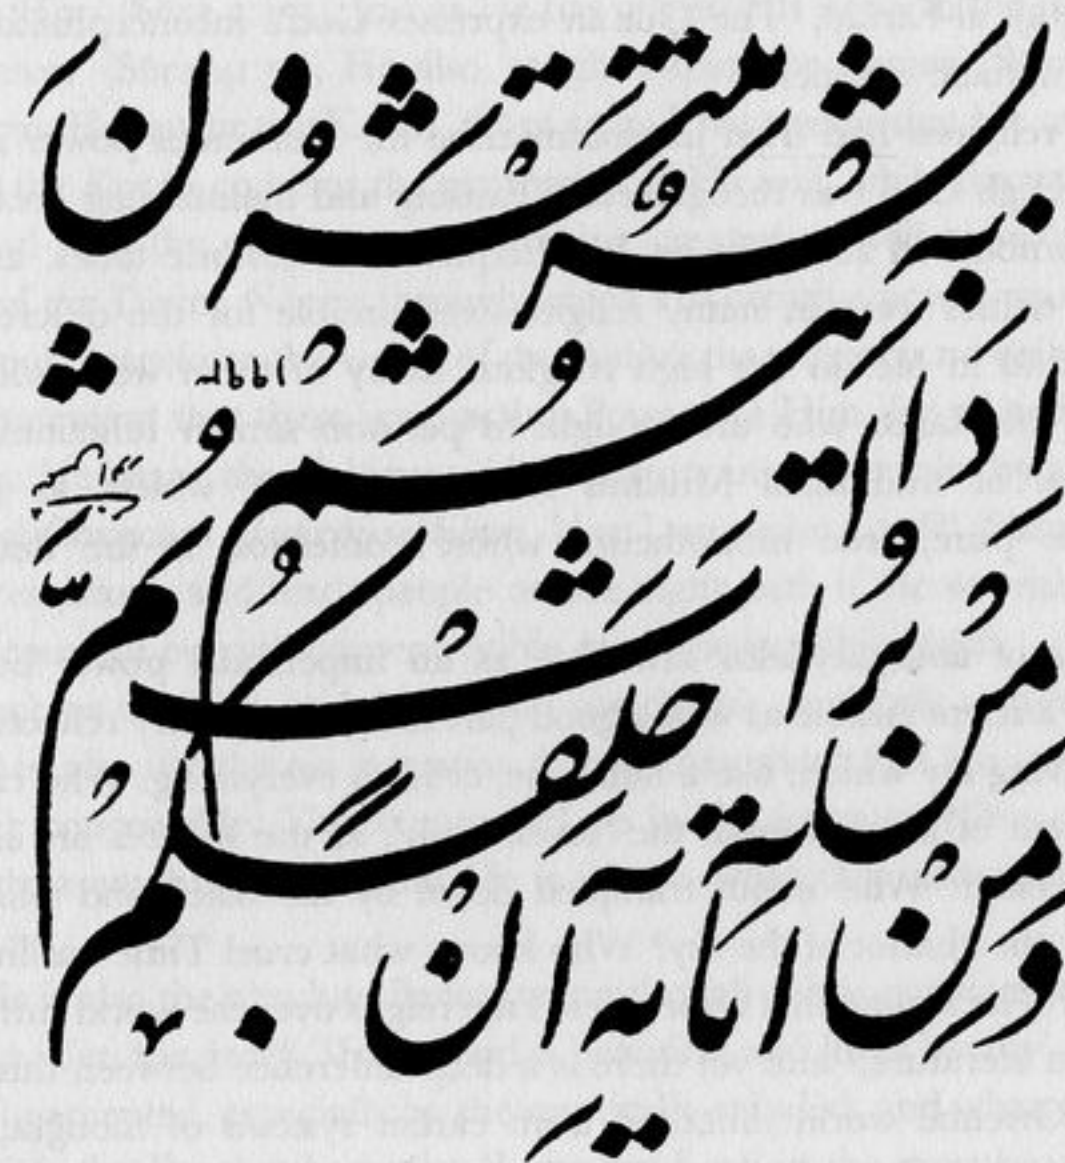 وَمِنْ اٰيَاتِهِ اَنْ
خَلَقَكُمْ
مِنْ تُرَابٍ ثُمَّ
اِذَا اَنْتُمْ
بَشَرٌ تَنْتَشِرُونَ